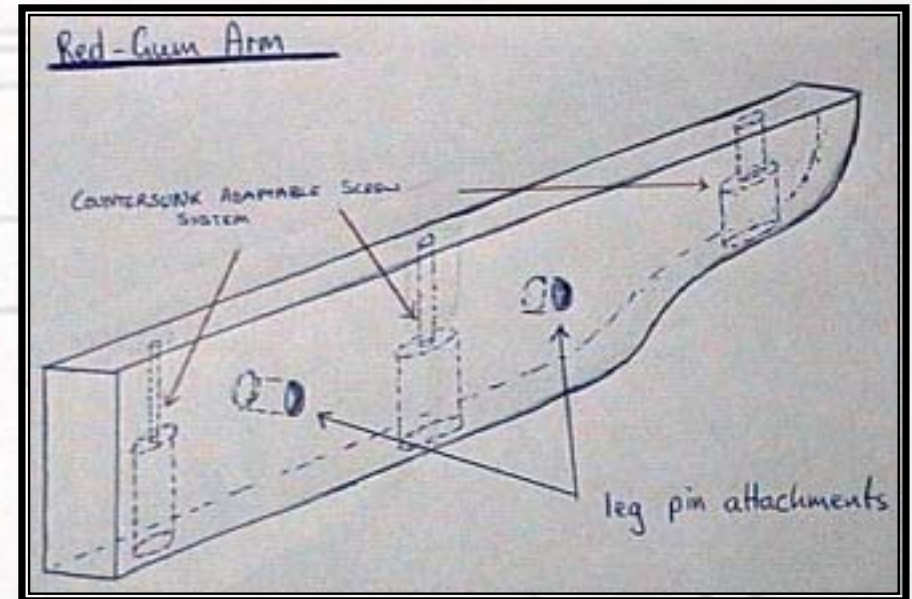 Red-Gum Arm
COUNTERSUNK ADAPTABLE SCREW
SYSTEM
leg pin attachments